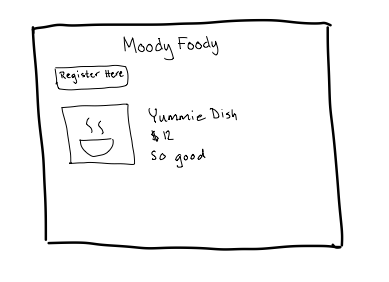 Moody Foody
Register Here
Yummie Dish
$12
So good